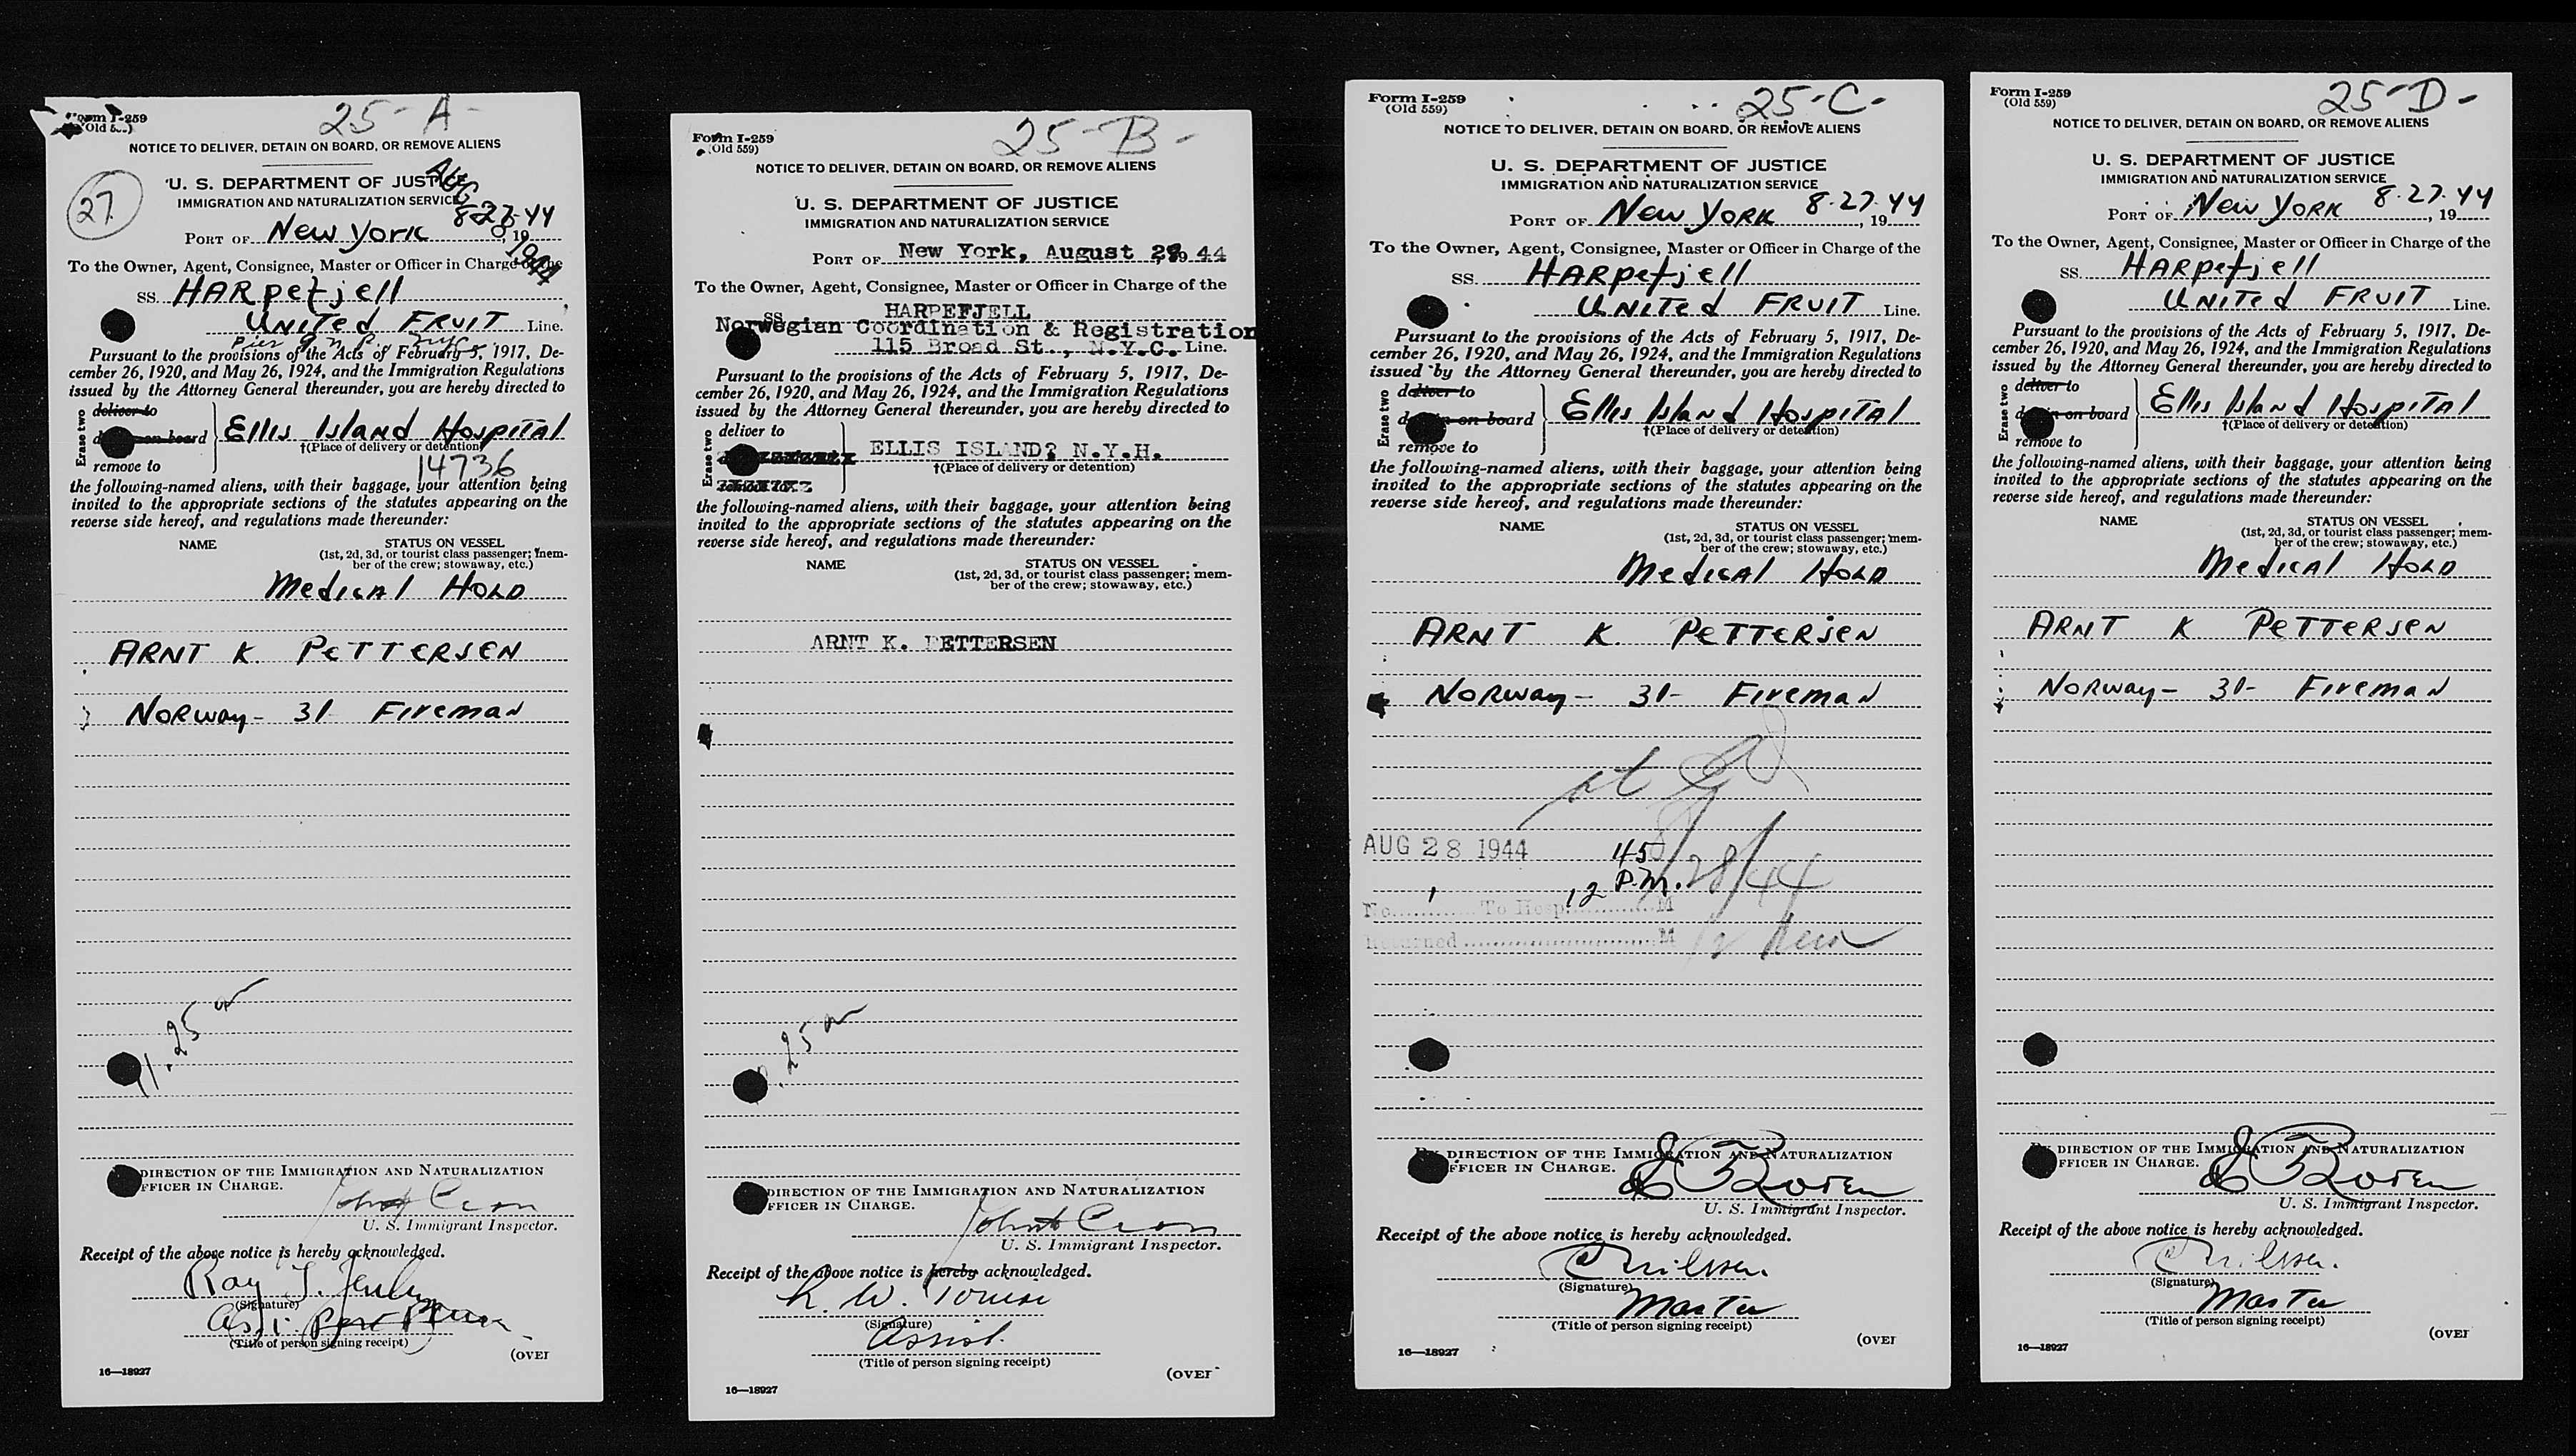 25-A-
Form I-259
(Old 559)
NOTICE TO DELIVER, DETAIN ON BOARD, OR REMOVE ALIENS
27
U. S. DEPARTMENT OF JUSTICE
IMMIGRATION AND NATURALIZATION SERVICE
AUG 1944
PORT OF New York 8-27-44, 19
To the Owner, Agent, Consignee, Master or Officer in Charge of the
SS. HARpefjell
UNITed FRUIT Line.
Pursuant to the provisions of the Acts of February 5, 1917, De-
cember 26, 1920, and May 26, 1924, and the Immigration Regulations
issued by the Attorney General thereunder, you are hereby directed to
Erase two
deliver to
on board
remove to
Ellis Island Hospital
†(Place of delivery or detention)
14736
the following-named aliens, with their baggage, your attention being
invited to the appropriate sections of the statutes appearing on the
reverse side hereof, and regulations made thereunder:
NAME STATUS ON VESSEL
(1st, 2d, 3d, or tourist class passenger; mem-
ber of the crew; stowaway, etc.)
Medical Hold
ARNT K. PeTTERSEN
NORway- 31- Fireman
11.25 am
DIRECTION OF THE IMMIGRATION AND NATURALIZATION
FFICER IN CHARGE.
U. S. Immigrant Inspector.
Receipt of the above notice is hereby acknowledged.
Ray
(Signature)
(Title of person signing receipt)
(OVER
16—18927
25-B-
Form I-259
(Old 559)
NOTICE TO DELIVER, DETAIN ON BOARD, OR REMOVE ALIENS
U. S. DEPARTMENT OF JUSTICE
IMMIGRATION AND NATURALIZATION SERVICE
PORT OF New York, August 28, 1944
To the Owner, Agent, Consignee, Master or Officer in Charge of the
SS HARPEFJELL
Norwegian Coordination & Registration
115 Broad St., N.Y.C. Line.
Pursuant to the provisions of the Acts of February 5, 1917, De-
cember 26, 1920, and May 26, 1924, and the Immigration Regulations
issued by the Attorney General thereunder, you are hereby directed to
Erase two
deliver to
ELLIS ISLAND? N.Y.H.
†(Place of delivery or detention)
the following-named aliens, with their baggage, your attention being
invited to the appropriate sections of the statutes appearing on the
reverse side hereof, and regulations made thereunder:
NAME STATUS ON VESSEL
(1st, 2d, 3d, or tourist class passenger; mem-
ber of the crew; stowaway, etc.)
ARNT K. PETTERSEN
.25 am
DIRECTION OF THE IMMIGRATION AND NATURALIZATION
FFICER IN CHARGE.
U. S. Immigrant Inspector.
Receipt of the above notice is hereby acknowledged.
(Signature)
Assist.
(Title of person signing receipt)
(OVER
16—18927
25-C-
Form I-259
(Old 559)
NOTICE TO DELIVER, DETAIN ON BOARD, OR REMOVE ALIENS
U. S. DEPARTMENT OF JUSTICE
IMMIGRATION AND NATURALIZATION SERVICE
PORT OF New York 8-27-44, 19
To the Owner, Agent, Consignee, Master or Officer in Charge of the
SS. HARpefjell
UNITed FRUIT Line.
Pursuant to the provisions of the Acts of February 5, 1917, De-
cember 26, 1920, and May 26, 1924, and the Immigration Regulations
issued by the Attorney General thereunder, you are hereby directed to
Erase two
deliver to
on board
remove to
Ellis Island Hospital
†(Place of delivery or detention)
the following-named aliens, with their baggage, your attention being
invited to the appropriate sections of the statutes appearing on the
reverse side hereof, and regulations made thereunder:
NAME STATUS ON VESSEL
(1st, 2d, 3d, or tourist class passenger; mem-
ber of the crew; stowaway, etc.)
Medical Hold
ARNT K. PeTTERSEN
NORway- 31- Fireman
AUG 28 1944
8/28/44
45
P.M.
No. 1 To Hosp. 12 M
Returned M
BY DIRECTION OF THE IMMIGRATION AND NATURALIZATION
FFICER IN CHARGE.
U. S. Immigrant Inspector.
Receipt of the above notice is hereby acknowledged.
(Signature)
Master
(Title of person signing receipt)
(OVER
16—18927
25-D-
Form I-259
(Old 559)
NOTICE TO DELIVER, DETAIN ON BOARD, OR REMOVE ALIENS
U. S. DEPARTMENT OF JUSTICE
IMMIGRATION AND NATURALIZATION SERVICE
PORT OF New York 8-27-44, 19
To the Owner, Agent, Consignee, Master or Officer in Charge of the
SS. HARpefjell
UNITed FRUIT Line.
Pursuant to the provisions of the Acts of February 5, 1917, De-
cember 26, 1920, and May 26, 1924, and the Immigration Regulations
issued by the Attorney General thereunder, you are hereby directed to
Erase two
deliver to
on board
remove to
Ellis Island Hospital
†(Place of delivery or detention)
the following-named aliens, with their baggage, your attention being
invited to the appropriate sections of the statutes appearing on the
reverse side hereof, and regulations made thereunder:
NAME STATUS ON VESSEL
(1st, 2d, 3d, or tourist class passenger; mem-
ber of the crew; stowaway, etc.)
Medical Hold
ARNT K PeTTERSEN
NORway- 31- Fireman
BY DIRECTION OF THE IMMIGRATION AND NATURALIZATION
FFICER IN CHARGE.
U. S. Immigrant Inspector.
Receipt of the above notice is hereby acknowledged.
(Signature)
Master
(Title of person signing receipt)
(OVER
16—18927